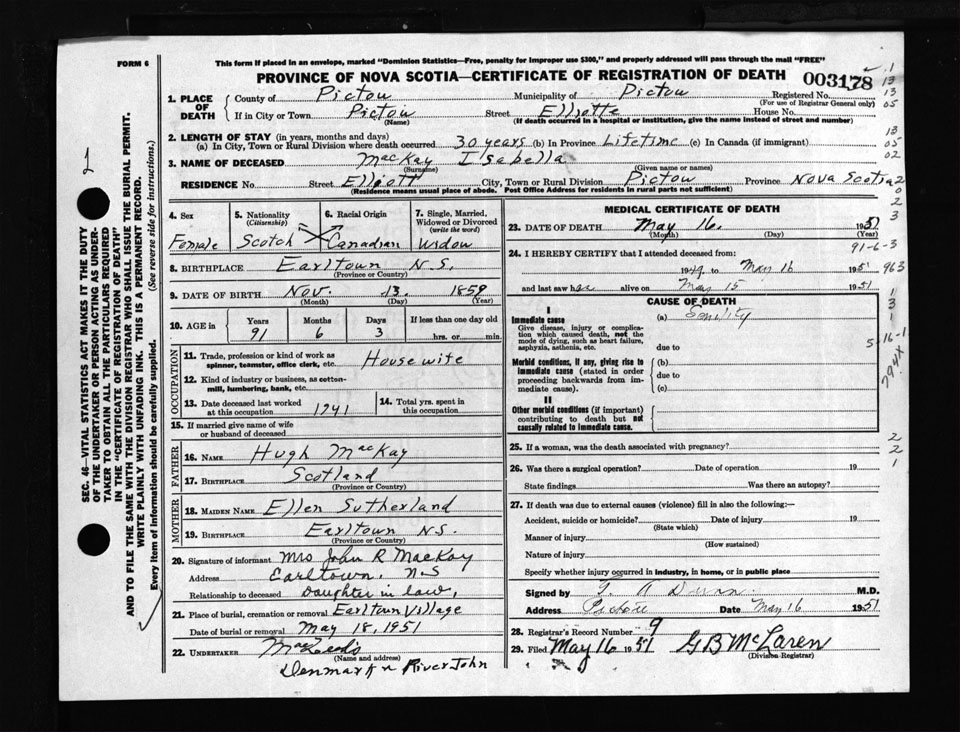 FORM 6
This form if placed in an envelope, marked "Dominion Statistics—Free, penalty for improper use $300," and properly addressed will pass through the mail "FREE"
PROVINCE OF NOVA SCOTIA—CERTIFICATE OF REGISTRATION OF DEATH 003178
1. PLACE OF DEATH County of Pictou Municipality of Pictou Registered No.
(For use of Registrar General only)
If in City or Town Pictou Street Elliotte House No.
(Name) (If death occurred in a hospital or institution, give the name instead of street and number)
2. LENGTH OF STAY (in years, months and days)
(a) In City, Town or Rural Division where death occurred 30 years (b) In Province Lifetime (c) In Canada (if immigrant)
3. NAME OF DECEASED MacKay Isabella
(Surname) (Given name or names)
RESIDENCE No. Street Elliott City, Town or Rural Division Pictou Province Nova Scotia
(Residence means usual place of abode. Post Office Address for residents in rural parts not sufficient)
4. Sex
Female
5. Nationality
(Citizenship)
Scotch
6. Racial Origin
Canadian
7. Single, Married,
Widowed or Divorced
(write the word)
Widow
8. BIRTHPLACE Earltown N.S.
(Province or Country)
9. DATE OF BIRTH Nov. 13. 1859
(Month) (Day) (Year)
10. AGE in Years Months Days If less than one day old
91 6 3 hrs. or min.
OCCUPATION
11. Trade, profession or kind of work as
spinner, teamster, office clerk, etc. Housewife
12. Kind of industry or business, as cotton-
mill, lumbering, bank, etc.
13. Date deceased last worked
at this occupation 1941
14. Total yrs. spent in
this occupation
15. If married give name of wife
or husband of deceased
FATHER
16. Name Hugh MacKay
17. Birthplace Scotland
(Province or Country)
MOTHER
18. MAIDEN NAME Ellen Sutherland
19. Birthplace Earltown N.S.
(Province or Country)
20. Signature of informant Mrs John R MacKay
Address Earltown, N-S
Relationship to deceased Daughter in law,
21. Place of burial, cremation or removal Earltown Village
Date of burial or removal May 18, 1951
22. UNDERTAKER
(Name and address)
Denmark River John
MEDICAL CERTIFICATE OF DEATH
23. DATE OF DEATH May 16. 1951
(Month) (Day) (Year)
91-6-3
24. I HEREBY CERTIFY that I attended deceased from:
1949 to May 16 1951
and last saw her alive on May 15 1951
CAUSE OF DEATH
I
Immediate cause (a) Senility
Give disease, injury or complica-
tion which caused death, not the
mode of dying, such as heart failure,
asphyxia, asthenia, etc. due to
Morbid conditions, if any, giving rise to
immediate cause (stated in order
proceeding backwards from im-
mediate cause). (b)
due to
(c)
II
Other morbid conditions (if important)
contributing to death but not
causally related to immediate cause.
25. If a woman, was the death associated with pregnancy?
26. Was there a surgical operation? Date of operation 19
State findings Was there an autopsy?
27. If death was due to external causes (violence) fill in also the following:
Accident, suicide or homicide? Date of injury 19
(State which)
Manner of injury
(How sustained)
Nature of injury
Specify whether injury occurred in industry, in home, or in public place
Signed by M.D.
Address Date May 16 1951
28. Registrar's Record Number 9
29. Filed May 16 1951 G B McLaren
(Division Registrar)
SEC. 46—VITAL STATISTICS ACT MAKES IT THE DUTY
OF THE UNDERTAKER OR PERSON ACTING AS UNDER-
TAKER TO OBTAIN ALL THE PARTICULARS REQUIRED
IN THE "CERTIFICATE OF REGISTRATION OF DEATH"
AND TO FILE THE SAME WITH THE DIVISION REGISTRAR WHO SHALL ISSUE THE BURIAL PERMIT.
WRITE PLAINLY WITH UNFADING INK. THIS IS A PERMANENT RECORD.
Every item of Information should be carefully supplied. (See reverse side for instructions.)
1
13
13
05
13
05
02
20
2
3
963
1
3
1
5-16-1
794X
2
2
1